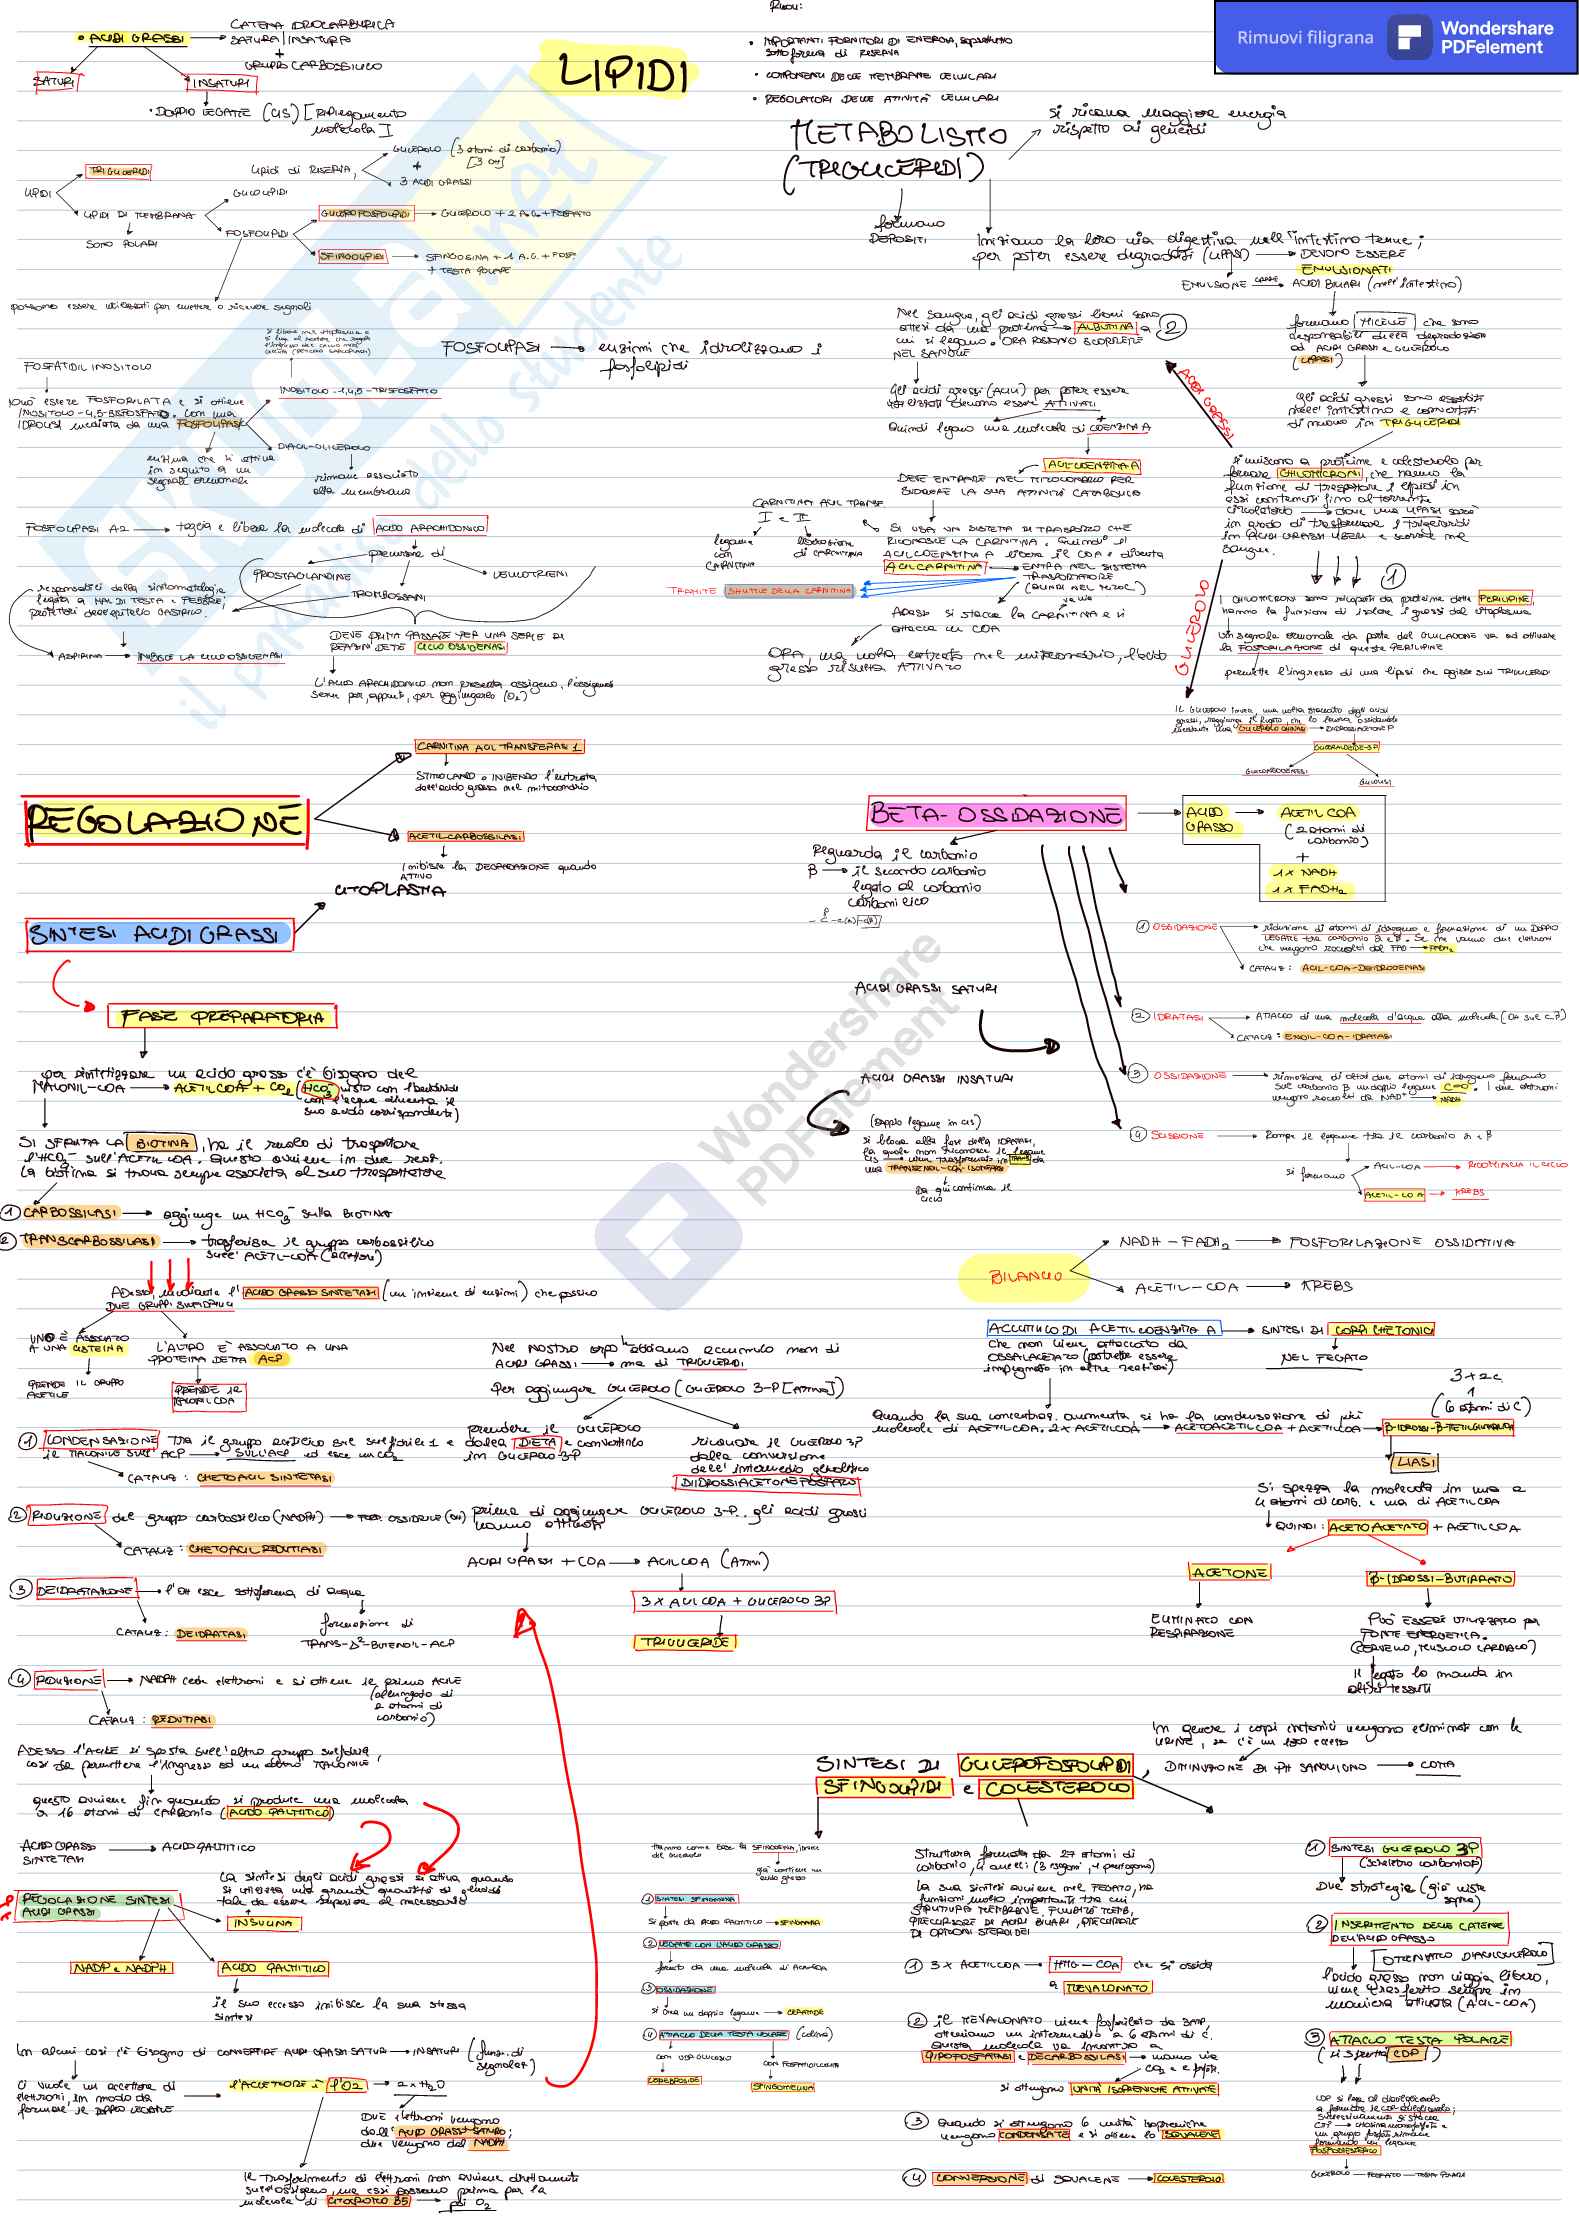 Rimuovi filigrana
Wondershare
PDFelement
LIPIDI
ACIDI GRASSI
CATENA IDROCARBURICA
SATURA/INSATURA
+
GRUPPO CARBOSSILICO
SATURI
INSATURI
DOPPIO LEGAME (CIS) [RIPIEGAMENTO
molecola]
LIPIDI
TRIGLICERIDI
Lipidi di RISERVA
GLICEROLO (3 atomi di carbonio)
[3 OH]
+
3 ACIDI GRASSI
LIPIDI DI MEMBRANA
SONO POLARI
GLICOLIPIDI
FOSFOLIPIDI
GLICEROFOSFOLIPIDI
GLICEROLO + 2 A.G. + FOSFATO
SFINGOLIPIDI
SFINGOSINA + 1 A.G. + FOSF
+ TESTA POLARE
possono essere utilizzati per emettere o ricevere segnali
FOSFOLIPASI
enzimi che idrolizzano i
fosfolipidi
FOSFATIDIL INOSITOLO
INOSITOLO-1,4,5-TRISFOSFATO
Può essere FOSFORILATA e si ottiene
INOSITOLO-4,5-BISFOSFATO. Con una
IDROLISI mediata da una FOSFOLIPASI
enzima che si attiva
in seguito a un
segnale ormonale
DIACIL-GLICEROLO
rimane associato
alla membrana
FOSFOLIPASI A2
taglia e libera la molecola di ACIDO ARACHIDONICO
precursore di
PROSTAGLANDINE
TROMBOSSANI
LEUCOTRIENI
responsabili della sintomatologia
legata a MAL DI TESTA e FEBBRE;
protettori dell'epitelio GASTRICO.
ASPIRINA
INIBISCE LA CICLOOSSIGENASI
DEVE PRIMA PASSARE PER UNA SERIE DI
REAZIONI DETTE CICLO OSSIGENASI
L'ACIDO ARACHIDONICO non presenta ossigeno, l'ossigenasi
serve per, appunto, per aggiungerlo (O2)
Ruoli:
IMPORTANTI FORNITORI DI ENERGIA, soprattutto
sotto forma di RISERVA
COMPONENTI DELLE MEMBRANE CELLULARI
REGOLATORI DELLE ATTIVITÀ CELLULARI
METABOLISMO
(TRIGLICERIDI)
si ricava maggiore energia
rispetto ai glucidi
formano
DEPOSITI
Iniziano la loro via digestiva nell'intestino tenue;
per poter essere degradati (LIPASI)
DEVONO ESSERE
EMULSIONATI
EMULSIONE
ACIDI BILIARI (nell'intestino)
formano MICELLE che sono
responsabili della degradazione
ad ACIDI GRASSI e GLICEROLO
(LIPASI)
Gli acidi grassi sono assorbiti
nell'intestino e convertiti
di nuovo in TRIGLICERIDI
Si uniscono a proteine e colesterolo per
formare CHILOMICRONI, che hanno la
funzione di trasportare i lipidi in
essi contenuti fino al torrente
circolatorio dove una LIPASI sarà
in grado di trasformare i trigliceridi
in ACIDI GRASSI LIBERI e scorrere nel
sangue.
Nel sangue, gli acidi grassi liberi sono
attesi da una proteina ALBUMINA a
cui si legano. ORA POSSONO SCORRERE
NEL SANGUE
2
ACIDI GRASSI
Gli acidi grassi (ACILI) per poter essere
utilizzati devono essere ATTIVATI
Quindi legano una molecola di COENZIMA A
ACIL COENZIMA A
DEVE ENTRARE NEL MITOCONDRIO PER
SVOLGERE LA SUA ATTIVITÀ CATABOLICA
CARNITINA ACIL TRANSF.
I e II
legame
con
CARNITINA
liberazione
di CARNITINA
SI USA UN SISTEMA DI TRASPORTO CHE
RICONOSCE LA CARNITINA. Quindi
ACILCOENZIMA A libera il COA e diventa
ACILCARNITINA
ENTRA NEL SISTEMA
TRASPORTATORE
TRAMITE SHUTTLE DELLA CARNITINA
Adesso si stacca la CARNITINA e si
attacca un COA
ORA, una volta entrato nel mitocondrio, l'acido
grasso risulta ATTIVATO
1
I CHILOMICRONI sono ricoperti da proteine dette PERILIPINE,
hanno la funzione di isolare i grassi dal citoplasma
Un segnale ormonale da parte del GLUCAGONE va ad attivare
la FOSFORILAZIONE di queste PERILIPINE
permette l'ingresso di una lipasi che agisce sui TRIGLICERIDI
GLICEROLO
IL GLICEROLO invece, una volta staccato dagli acidi
grassi, raggiunge il fegato, che lo lavora ossidandolo
mediante una GLICEROLO CHINASI DIIDROSSIACETONE P
GLICERALDEIDE-3P
GLUCONEOGENESI
GLICOLISI
REGOLAZIONE
CARNITINA ACIL TRANSFERASI 1
STIMOLANDO o INIBENDO l'entrata
dell'acido grasso nel mitocondrio
ACETILCARBOSSILASI
Inibisce la DEGRADAZIONE quando
ATTIVO
SINTESI ACIDI GRASSI
CITOPLASMA
FASE PREPARATORIA
per sintetizzare un acido grasso c'è bisogno del
MALONIL-COA ACETILCOA + CO2 (HCO3 visto con l'anidride
con l'acqua diventa il
suo acido corrispondente)
SI SFRUTTA LA BIOTINA, ha il ruolo di trasportare
l'HCO3- sull'ACETIL COA. Questo avviene in due reaz.
La biotina si trova sempre associata al suo trasportatore
1 CARBOSSILASI aggiunge un HCO3- sulla BIOTINA
2 TRANSCARBOSSILASI trasferisce il gruppo carbossilico
sull'ACETIL-COA
Adesso, mediante l'ACIDO GRASSO SINTETASI (un insieme di enzimi) che possiede
DUE GRUPPI SULFIDRILICI
UNO È ASSOCIATO
A UNA CISTEINA
PRENDE IL GRUPPO
ACETILE
L'ALTRO È ASSOCIATO A UNA
PROTEINA DETTA ACP
PRENDE IL
MALONIL COA
1 CONDENSAZIONE TRA il gruppo acetilico sul sulfidrile 1 e
il MALONICO SULL'ACP SULL'ACP ed esce un CO2
CATALIZ: CHETOACIL SINTETASI
2 RIDUZIONE del gruppo carbossilico (NADPH)
CATALIZ: CHETOACIL REDUTTASI
3 DEIDRATAZIONE l'OH esce sottoforma di acqua
CATALIZ: DEIDRATASI
formazione di
TRANS-Δ2-BUTENOIL-ACP
4 RIDUZIONE NADPH cede elettroni e si ottiene il primo ACILE
(allungato di
2 atomi di
carbonio)
CATALIZ: REDUTTASI
ADESSO l'ACILE si sposta sull'altro gruppo sulfidrile,
così da permettere l'ingresso ad un altro MALONICO
questo avviene fin quando si produce una molecola
a 16 atomi di carbonio (ACIDO PALMITICO)
ACIDO GRASSO
SINTETASI
ACIDO PALMITICO
REGOLAZIONE SINTESI
ACIDI GRASSI
La sintesi degli acidi grassi si attiva quando
si utilizza una grande quantità di glucidi
tale da essere superiore al necessario
INSULINA
NADP e NADPH
ACIDO PALMITICO
il suo eccesso inibisce la sua stessa
sintesi
In alcuni casi c'è bisogno di CONVERTIRE ACIDI GRASSI SATURI INSATURI (funz. di
segnale)
Ci vuole un accettore di
elettroni, in modo da
formare il DOPPIO LEGAME
l'ACCETTORE è l'O2 2 x H2O
DUE elettroni vengono
dall'ACIDO GRASSO SATURO;
due vengono dal NADPH
il trasferimento di elettroni non avviene direttamente
sull'ossigeno, ma essi passano prima per la
molecola di CITOCROMO B5 poi O2
Nel nostro corpo abbiamo accumulo non di
ACIDI GRASSI ma di TRIGLICERIDI
Per aggiungere GLICEROLO (GLICEROLO 3-P [ATTIVO])
prendere il GLICEROLO
dalla DIETA e convertirlo
in GLICEROLO 3P
ricavare il GLICEROLO 3P
dalla conversione
dell'intermedio glicolitico
DIIDROSSIACETONE FOSFATO
prima di aggiungere GLICEROLO 3-P, gli acidi grassi
vanno attivati
ACIDI GRASSI + COA ACILCOA (ATTIVI)
3 X ACILCOA + GLICEROLO 3P
TRIGLICERIDE
BETA-OSSIDAZIONE
ACIDO
GRASSO
ACETIL COA
(2 atomi di
carbonio)
+
1 X NADH
1 X FADH2
Riguarda il carbonio
β il secondo carbonio
legato al carbonio
carbonilico
1 OSSIDAZIONE riduzione di atomi di idrogeno e formazione di un DOPPIO
LEGAME tra carbonio α e β. Se ne vanno due elettroni
che vengono raccolti dal FAD FADH2
CATALIZ: ACIL-COA-DEIDROGENASI
2 IDRATASI ATTACCO di una molecola d'acqua alla molecola (OH sul C β)
CATALIZ: ENOIL-COA-IDRATASI
3 OSSIDAZIONE rimozione di altri due atomi di idrogeno formando
sul carbonio β un doppio legame C=O. I due elettroni
vengono raccolti da NAD+ NADH
4 SCISSIONE Rompe il legame tra il carbonio α e β
si formano
ACIL-COA RICOMINCIA IL CICLO
ACETIL-COA KREBS
ACIDI GRASSI SATURI
ACIDI GRASSI INSATURI
(doppio legame in cis)
si blocca alla fase della IDRATASI,
la quale non riconosce il legame
CIS viene trasformato in TRANS da
una TRANS ENOIL-COA-ISOMERASI
Da qui continua il
ciclo
BILANCIO
NADH-FADH2 FOSFORILAZIONE OSSIDATIVA
ACETIL-COA KREBS
ACCUMULO DI ACETILCOENZIMA A SINTESI DI CORPI CHETONICI
NEL FEGATO
che non viene attaccato da
OSSALACETATO (potrebbe essere
impegnato in altre reazioni)
3+2C
(6 atomi di C)
Quando la sua concentraz. aumenta, si ha la condensazione di più
molecole di ACETILCOA. 2X ACETILCOA ACETOACETILCOA + ACETILCOA β-IDROSSI-β-METILGLUTARIL
LIASI
Si spezza la molecola in una a
4 atomi di carb. e una di ACETILCOA
QUINDI: ACETOACETATO + ACETILCOA
ACETONE
ELIMINATO CON
RESPIRAZIONE
β-IDROSSI-BUTIRRATO
PUÒ ESSERE UTILIZZATO per
FONTE ENERGETICA.
(CERVELLO, MUSCOLO CARDIACO)
il fegato lo manda in
altri tessuti
In genere i corpi chetonici vengono eliminati con le
URINE, se c'è un loro eccesso
DIMINUZIONE DI PH SANGUIGNO COMA
SINTESI DI GLICEROFOSFOLIPIDI
SFINGOLIPIDI e COLESTEROLO
hanno come base la SFINGOSINA, invece
del GLICEROLO
già contiene un
acido grasso
1 SINTESI SFINGANINA
Si parte da ACIDO PALMITICO SFINGANINA
2 LEGAME CON L'ACIDO GRASSO
formato da una molecola di ACILCOA
3 OSSIDAZIONE
si crea un doppio legame CERAMIDE
4 ATTACCO DELLA TESTA POLARE (colina)
CON UDP GLUCOSIO
CEREBROSIDE
CON FOSFATIDILCOLINA
SFINGOMIELINA
Struttura formata da 27 atomi di
carbonio, 4 anelli (3 esagoni, 1 pentagono)
La sua sintesi avviene nel FEGATO, ha
funzioni molto importanti tra cui
STRUTTURA MEMBRANE, FLUIDITÀ MEMB,
PRECURSORE DI ACIDI BILIARI, PRECURSORE
DI ORMONI STEROIDEI
1 3 X ACETILCOA HMG-COA che si ossida
a MEVALONATO
2 il MEVALONATO viene fosforilato da 3ATP,
otteniamo un intermedio a 6 atomi di C.
Questa molecola va incontro a
PIROFOSFATASI e DECARBOSSILASI vanno via
CO2 e e fosfati
si ottengono UNITÀ ISOPRENICHE ATTIVATE
3 Quando si ottengono 6 unità isopreniche
vengono CONDENSATE e si ottiene lo SQUALENE
4 CONVERSIONE di SQUALENE COLESTEROLO
1 SINTESI GLICEROLO 3P
(scheletro carbonioso)
DUE strategie (già viste
sopra)
2 INSERIMENTO DELLE CATENE
DELL'ACIDO GRASSO
[OTTENIAMO DIACILGLICEROLO]
l'acido grasso non viaggia libero,
viene trasferito sempre in
maniera attivata (ACIL-COA)
3 ATTACCO TESTA POLARE
(si sfrutta CDP)
CDP si lega al diacilglicerolo
a formare il CDP-diacilglicerolo;
successivamente si stacca
un gruppo fosfato rimane
formando un legame
FOSFODIESTERICO
GLICEROLO — FOSFATO — TESTA POLARE
Wondershare
PDFelement